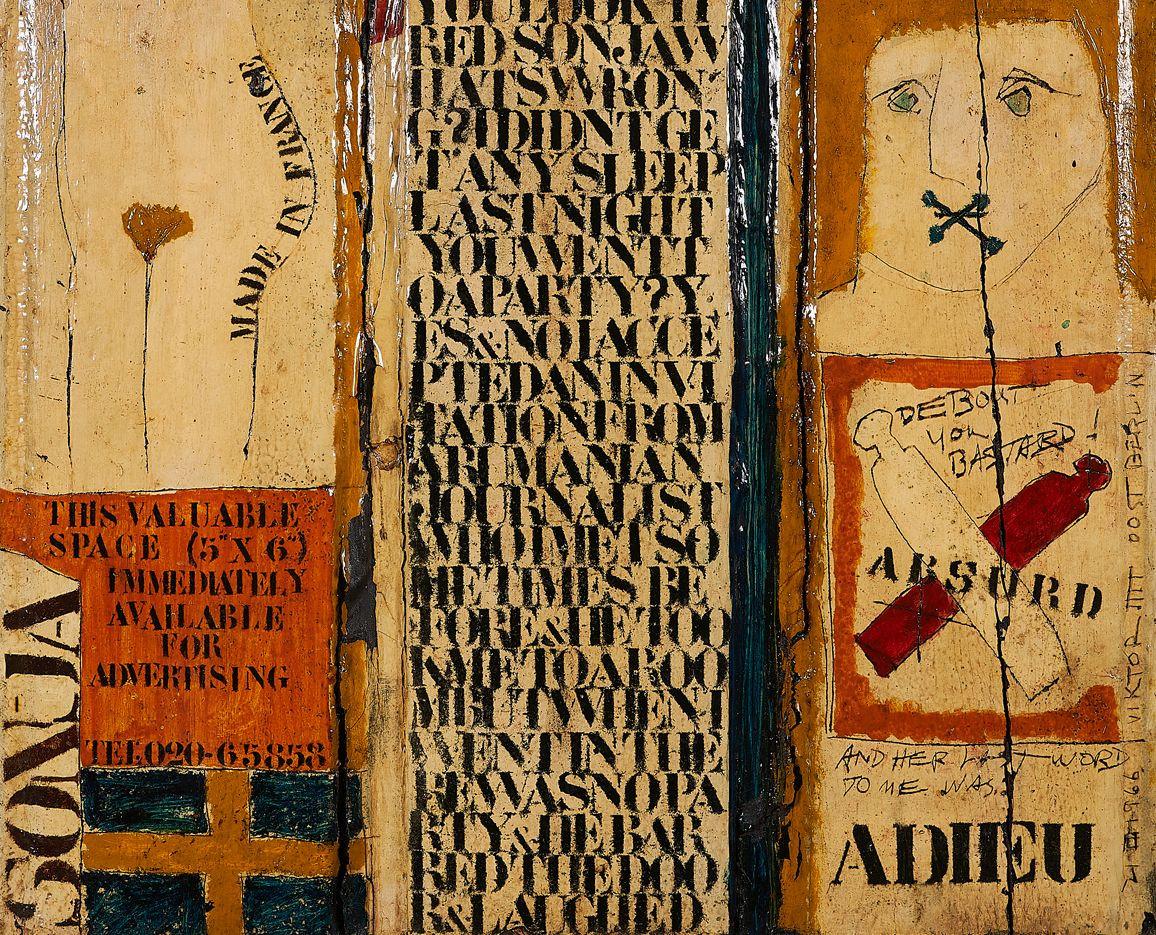 MADE IN FRANCE
THIS VALUABLE
SPACE (5"X 6")
IMMEDIATELY
AVAILABLE
FOR
ADVERTISING
TEL020-65858
SONJA
YOULOOKTI
RED SONJAW
HATSWRON
G?IDIDNTGE
TANY SLEEP
LASTNIGHT
YOUWENTT
OAPARTY?Y
ES&NOIACCE
PTEDANINVI
TATIONFROM
ARUMANIAN
JOURNALIST
WHOIMETSO
METIMES BE
FORE&HETOO
KMETOAROO
MBUTWHENI
WENTINTHE
REWASNOPA
RTY&HEBAR
REDTHEDOO
R&LAUGHED
DEBOUT
YOU
BASTARD!
ABSURD
AND HER LAST WORD
TO ME WAS..
ADIEU
1966 VIKTOR IIII OOST BERLIN